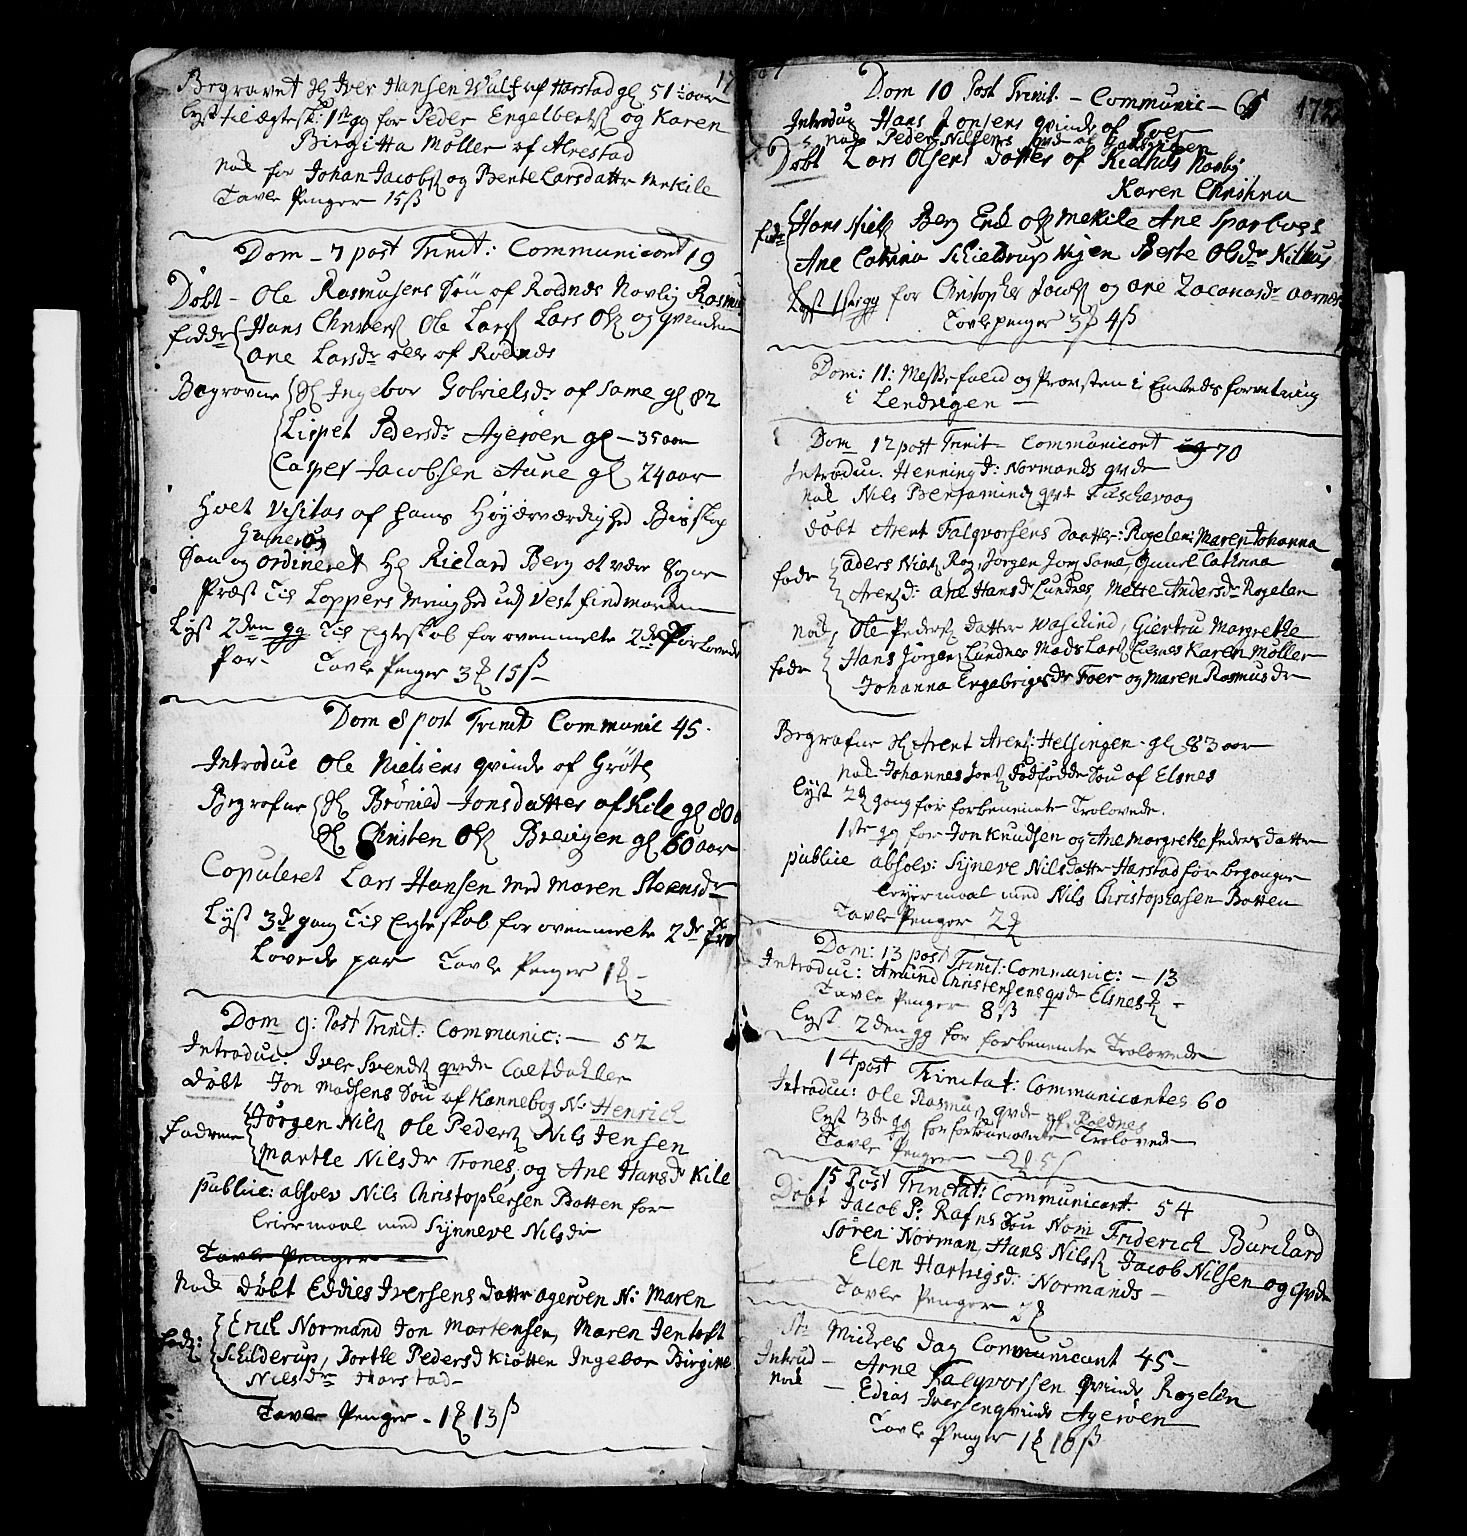 Begravet Sl Iver Hansen Wulf af Harstad gl 51½ aar
Lyst til Egtesk: 1ste gg for Peder Engelbertz og Karen
Birgitta Møller af Alvestad
nok for Johan Jacobs og Berte Larsdattr Mekile
Tavle Penger 15 ß
Dom 7 post Trinit: Communicant 19
Døbt - Ole Rasmusens Søn af Rodnæs Navlig Rasmus
faddr Hans Christens Ole Lars Lars Ols og qvinden
Ane Larsdr alle af Rodnæs
Begravne Sl Ingebor Gabrielsdr af Same gl 82
Lispet Pedersdr Agerøen gl - 35 aar
Casper Jacobsen Aune gl 24 aar
Holt Visitas af hans Høyærværdighed Biskop
Gunnerus
Saa og ordineret Hl Richard Berg at være Sogne
Præst Til Loppers Menighed udj Vest finmarken
Lyst 2den gg Til Egteskab for ovenmelte 2de Forlovede
Par - Tavle Penger 3 15 ß
Dom 8 post Trinit Communic 45
Introduc Ole Nielsens qvinde af Grøtz
Begrafne Sl Brønild Jonsdatter af Kile gl 80
Sl Christen Ols Brevigen gl 60 aar
Copuleret Lars Hansen med Maren Steensdr
Lyst 3de gang Til Egteskab for ovenmelte 2de Tro
Lovede par Tavle Penger 1
Dom 9: Post Trinit: Communic: - 52
Introduc: Iver Svends qvde
Døbt Jon Madsens Søn af Kannebog N: Henrich
Fadrene Jørgen Nils Ole Peders Nils Jensen
Marthe Nilsdr Trones, og Ane Hansdr Kile
publice: absolv Nils Christophersen Botten for
Leiermaal med Synneve Nilsdr
Tavle Penger
Nok døbt Eddies Iversens dattr Agerøen N: Maren
fad: Erich Normand Jon Mortensen, Maren Jentoft
Schilderup, Dorthe Pedersd Kiøtten Ingebor Birgine
Nilsdr Harstad
Tavle Penger - 1 13 ß
Dom 10 Post Trinit. - Communic - 65 177
Introduc Hans Jonsens qvinde af Foer
nok Peder Nilsens qvd af
Døbt Lars Olsens datter af Nasby
Karen Christina
fadr Hans Niels Berg Erik Ols Mekile Ane
Ane Catrina Schieldrup Vigen Berte Olsdr
Lyst 1ste gg for Christopher Jacobs og Ane Zacariasdr Aarnes
Tavlepenger 3 4 ß
Dom: 11: Messefald og Provsten i Embeds forretning
i Lendvigen -
Dom 12 post Trinit - Communicant 70
Introduc. Henning d: Normands qvde
nok Nils Benjamins qvde
døbt Arent Falqvorsens daatter: Rogelen: Maren Johanna
fadr Aders Niels Rog, Jørgen Jons Same, Gunil Catrina
Arensd: Ane Hansdr Lundnes Mette Andersdr Rogelen
Nok, Ole Peders datter Waschind, Giertru Margrethe
fadr Hans Jørgens Lundnes Mads Lars Elgsnes Karen Møller
Johanna Engebrigtsdr Foer og Maren Rasmusdr
Begrafne Sl Arent Arents: Helsingen - gl 83 aar
nok Johannes Jons Dødfødde Søn af Elsnes
Lyst 2 gang for forbenemte Trolovede.
1ste gg for Jon Knudsen og Ane Margrethe Peders datter
publice absolv: Synneve Nilsdatter Harstad for begangne
Leyermaal med Nils Christophersen Botten
Tavle Penger 2
Dom: 13 post Trinit: Communic: - 13
Introduc: Amund Christensens qvde Elsnes
Tavle Penger 8 ß
Lyst 2den gg for forbenemte Trolovede
14 post Trinitat: Communicantes 60
Introduc: Ole Rasmus qvde af Roldnes
Lyst 3de gg for forbenevnte Trolovede
Tavle Penger - 2 5 ß
15 Post Trinitat: Communicant. 54
Døbt Jacob P: Rafns Søn Nom Friderich Burchard
Søren Norman, Hans Nils Jacob Nilsen og qvde
Elen Hartvigsd: Normands -
Tavle Penger - 2
St: Mickels Dag Communicant 45 -
Introd - Arne Falqvorsen qvinde Rogelen
nok - Edias Iversen qvinde Agerøen
Tavle Penger 1 10 ß